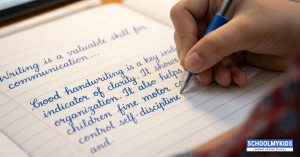 Writing is a valuable skill for
communication...
Good handwriting is a key ind
indicator of clarity. It shows
organization. It also helps
children fine motor co
control self-discipline
and.
SCHOOLMYKIDS